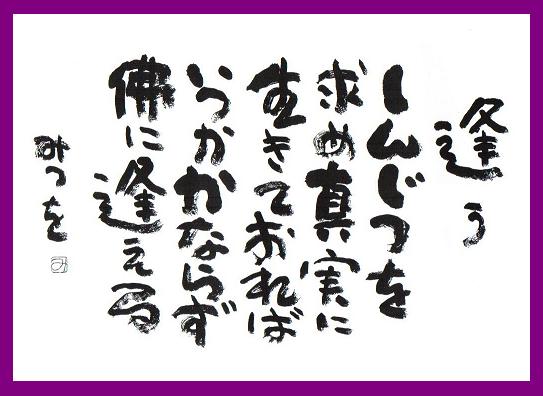 逢う
しんじつを
求め真実に
生きておれば
いつかかならず
佛に逢える
みつを
み